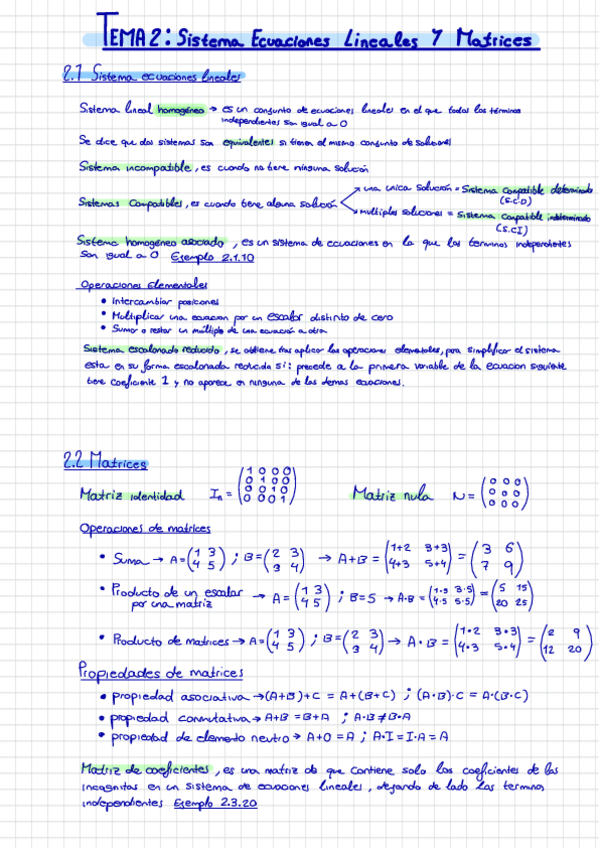 TEMA 2: Sistema Ecuaciones Lineales y Matrices
2.1 Sistema ecuaciones lineales
Sistema lineal homogéneo → es un conjunto de ecuaciones lineales en el que todos los términos
independientes son igual a 0
Se dice que dos sistemas son equivalentes si tienen el mismo conjunto de soluciones
Sistema incompatible, es cuando no tiene ninguna solución
Sistemas Compatibles, es cuando tiene alguna solución
→ una unica solución = Sistema compatible determinado
(S.C.D)
→ multiples soluciones = Sistema compatible indeterminado
(S.C.I)
Sistema homogéneo asociado, es un sistema de ecuaciones en la que los terminos independientes
son igual a 0 Ejemplo 2.1.10
Operaciones Elementales
• Intercambiar posiciones
• Multiplicar una ecuacion por un escalar distinto de cero
• Sumar o restar un múltiplo de una ecuación a otra
Sistema escalonado reducido, se obtiene tras aplicar las operaciones elementales, para simplificar el sistema
esta en su forma escalonada reducida si: precede a la primera variable de la ecuacion siguiente
tiene coeficiente 1 y no aparece en ninguna de las demas ecuaciones.
2.2 Matrices
Matriz identidad In = (1 0 0 0
0 1 0 0
0 0 1 0
0 0 0 1)
Matriz nula N = (0 0 0
0 0 0
0 0 0)
Operaciones de matrices
• Suma → A = (1 3
4 5) ; B = (2 3
3 4) → A+B = (1+2 3+3
4+3 5+4) = (3 6
7 9)
• Producto de un escalar
por una matriz → A = (1 3
4 5) ; B = 5 → A·B = (1·5 3·5
4·5 5·5) = (5 15
20 25)
• Producto de matrices → A = (1 3
4 5) ; B = (2 3
3 4) → A·B = (1·2 3·3
4·3 5·4) = (2 9
12 20)
Propiedades de matrices
• propiedad asociativa → (A+B)+C = A+(B+C) ; (A·B)·C = A·(B·C)
• propiedad conmutativa → A+B = B+A ; A·B ≠ B·A
• propiedad de elemento neutro → A+0 = A ; A·I = I·A = A
Matriz de coeficientes, es una matriz de que contiene solo los coeficientes de las
incognitas en un sistema de ecuaciones lineales, dejando de lado los terminos
independientes Ejemplo 2.3.20